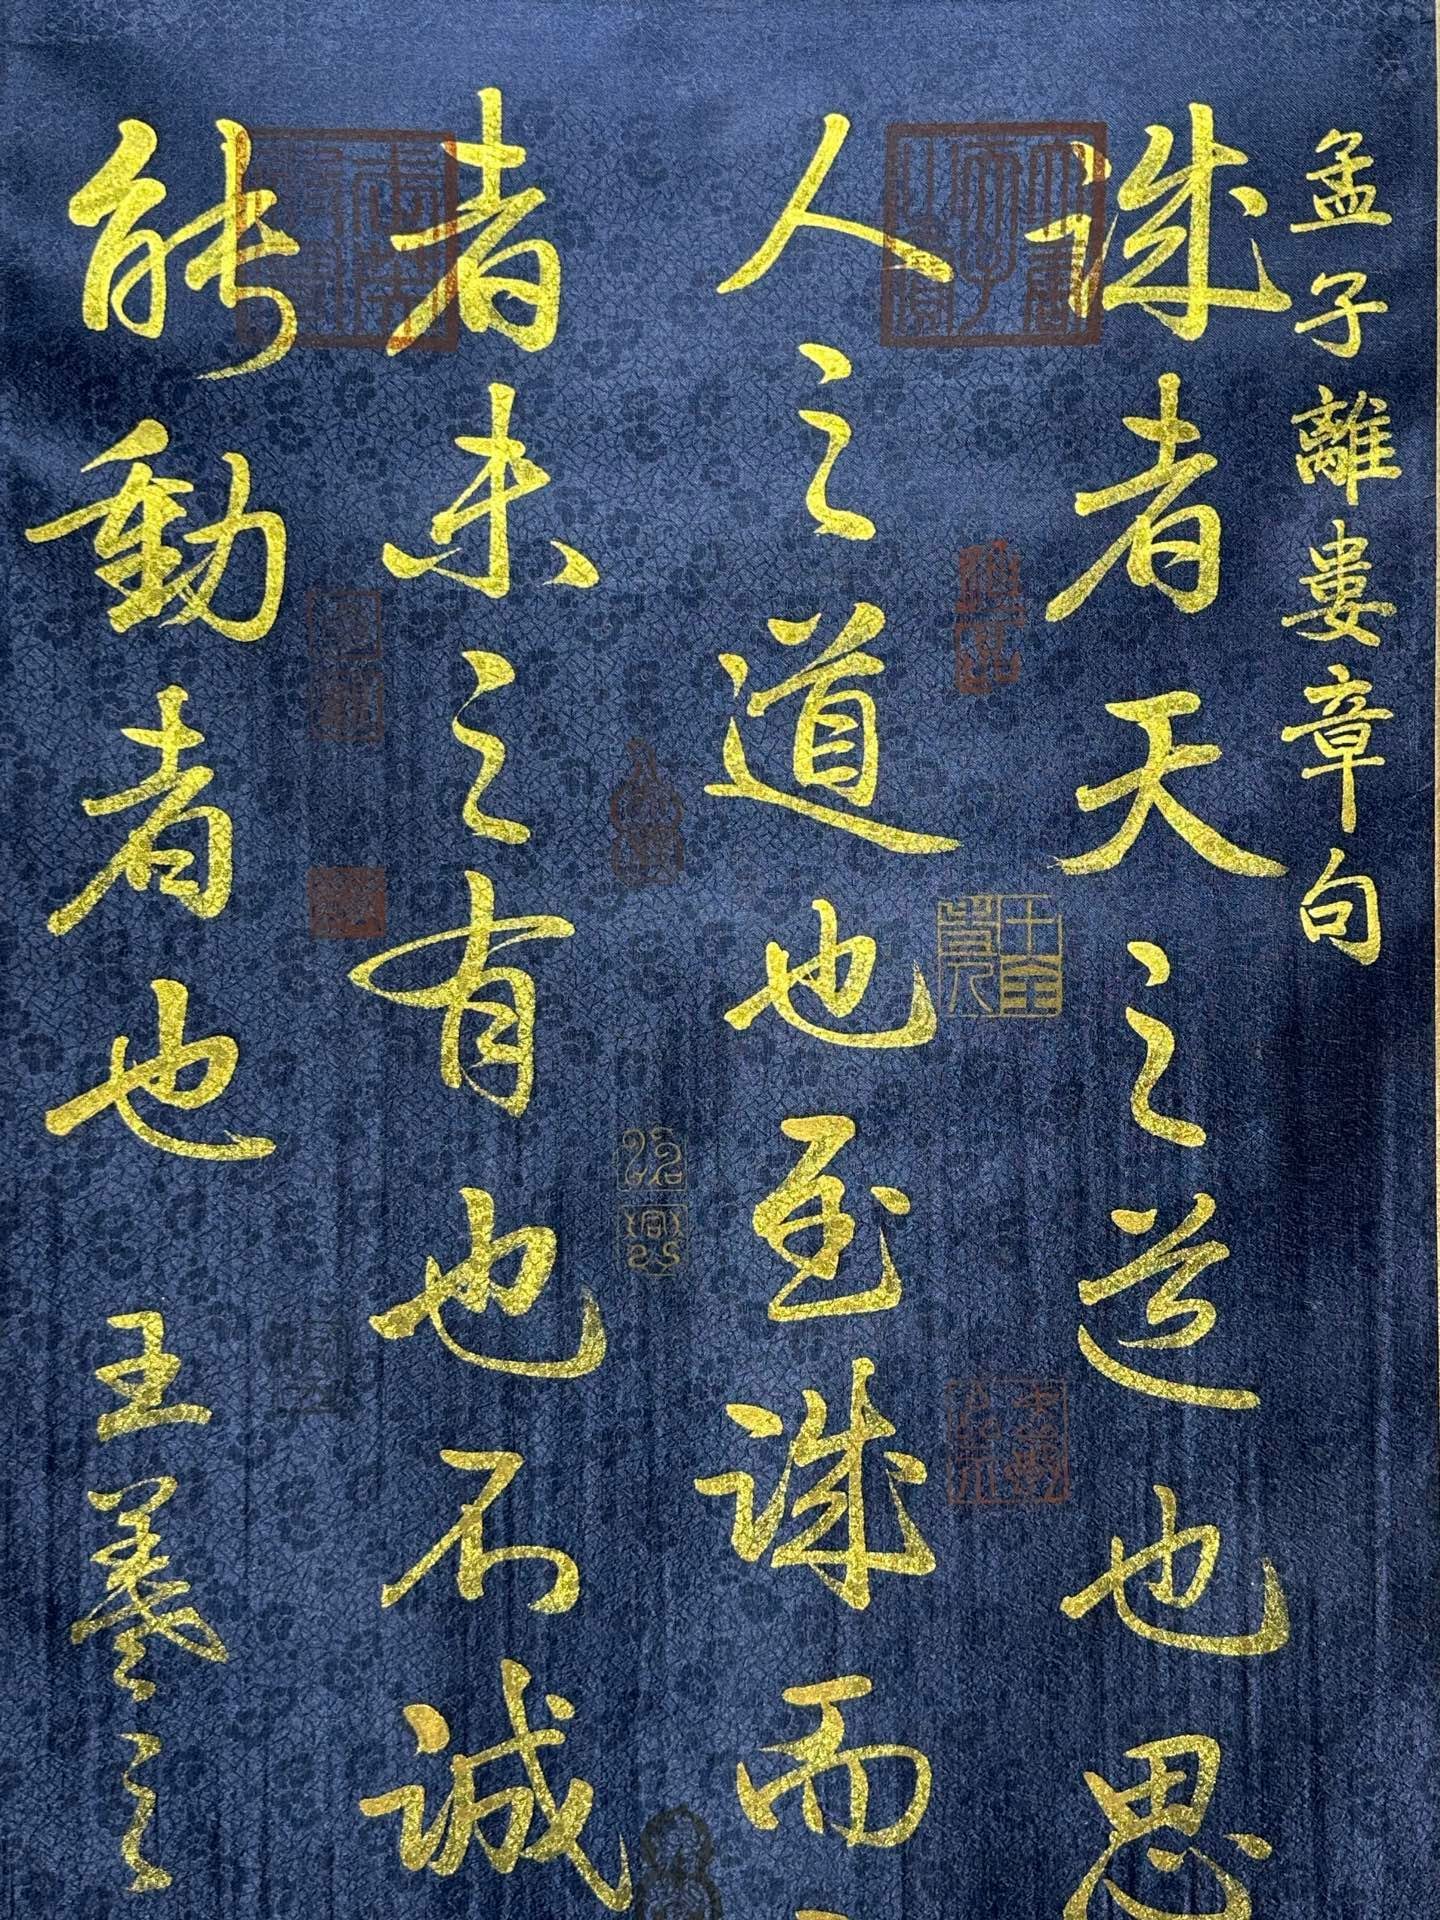 孟子離婁章句
誠者天之道也思
人之道也至誠而
者未之有也不誠
能動者也
王羲之